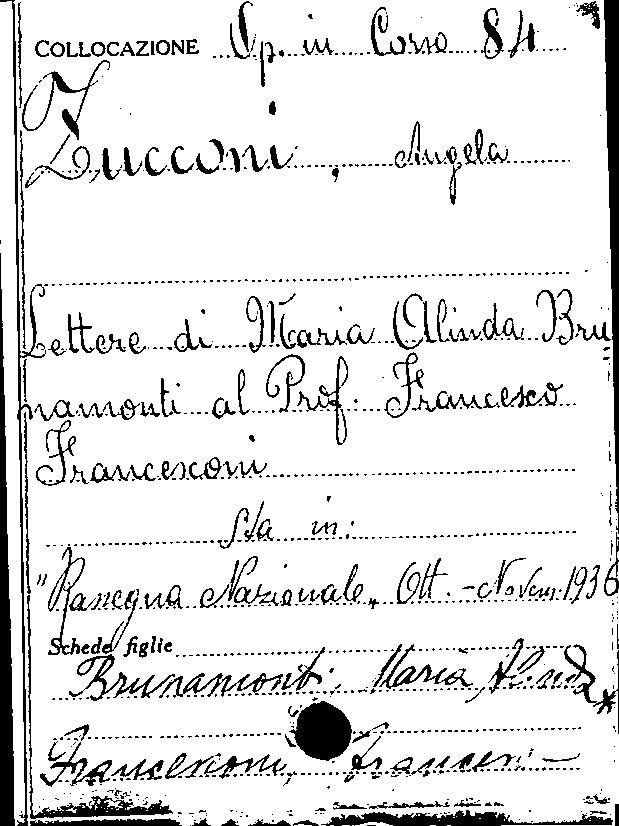 COLLOCAZIONE Op. in Corso 84
Zucconi, Angela
Lettere di Maria Alinda Bru
namonti al Prof. Francesco
Francesconi
sta in:
"Rassegna Nazionale„ Ott. - Novem. 1936
Schede figlie
Brunamonti, Maria Alinda *
Francesconi, Frances